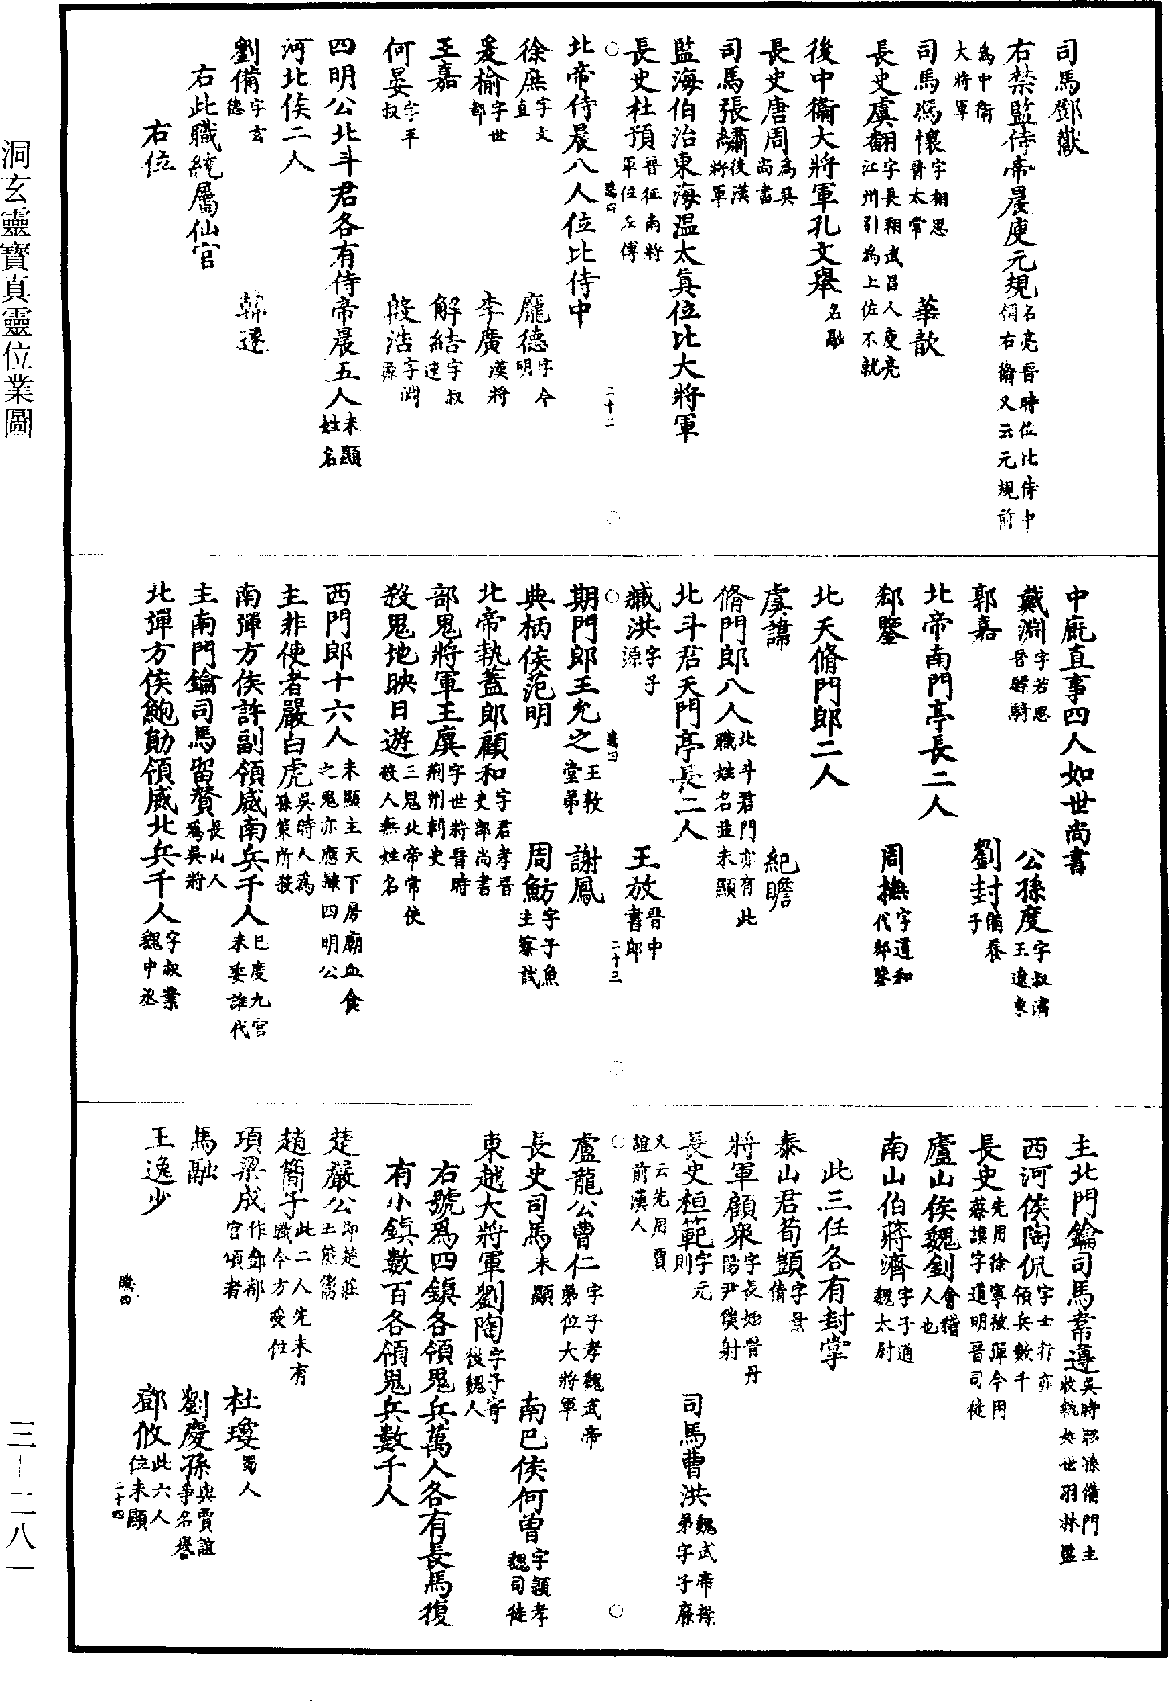 洞玄靈寶真靈位業圖
三—二八一
司馬鄧嶽
右禁監侍帝晨庾元規名亮晉時位比侍中何右衛又云元規前為中衛大將軍
司馬馮懷字相思晉太常 華歆
長史虞翻字長翔武昌人庾亮江州引為上佐不就
後中衛大將軍孔文舉名融
長史唐周為吳尚書
司馬張繡後漢將軍
監海伯治東海温太真位比大將軍
長史杜預晉征南將軍位左傳
北帝侍晨八人位比侍中
徐庶字文直 龐德字令明
爰榆字世都 李廣漢將
王嘉 解結字叔達
何晏字平叔 殷浩字淵源
四明公北斗君各有侍帝晨五人未顯姓名
河北侯二人
劉備字玄德 韓遂
右此職統屬仙官
右位
中庭直事四人如世尚書
戴淵字若思晉驃騎 公孫度字叔濟王遼東
郭嘉 劉封備養子
北帝南門亭長二人
郗鑒 周撫字道和代郗鑒
北天脩門郎二人
虞譚 紀瞻
脩門郎八人北斗君門亦有此職姓名並未顯
北斗君天門亭長二人
臧洪字子源 王放晉中書郎
期門郎王允之王敦堂弟 謝鳳
典柄侯范明 周魴字子魚主察試
北帝執蓋郎顧和字君孝晉吏部尚書
部鬼將軍王廙字世將晉時荆州刺史
殺鬼地映日遊三鬼北帝常使殺人無姓名
西門郎十六人未顯主天下房廟血食之鬼亦應隸四明公
主非使者嚴白虎吳時人為孫策所殺
南彈方侯許副領威南兵千人已度九宮未委誰代
主南門鑰司馬留贊長山人為吳將
北彈方侯鮑勛領威北兵千人字叔業魏中丞
西河侯陶侃字士行亦領兵數千
長史先用徐寧被彈今用蔡謨字道明晉司徒
廬山侯魏釗會稽人也
南山伯蔣濟字子通魏太尉
此三任各有封掌
泰山君荀顗字景倩
將軍顧衆字長始晉丹陽尹僕射
長史桓範字元則 司馬曹洪魏武帝從弟字子廉
又云先用賈誼前漢人
盧龍公曹仁字子孝魏武帝弟位大將軍
長史司馬未顯 南巴侯何曾字穎孝魏司徒
東越大將軍劉陶字子奇後魏人
右號為四鎮各領鬼兵萬人各有長馬復
有小鎮數百各領鬼兵數千人
楚嚴公即楚莊王熊
趙簡子此二人先未有職今方受位
項梁成作酆都宮頌者 杜瓊蜀人
馬融 劉慶孫與賈謐爭名譽
王逸少 鄧攸此六人位未顯
二十二
二十三
二十四